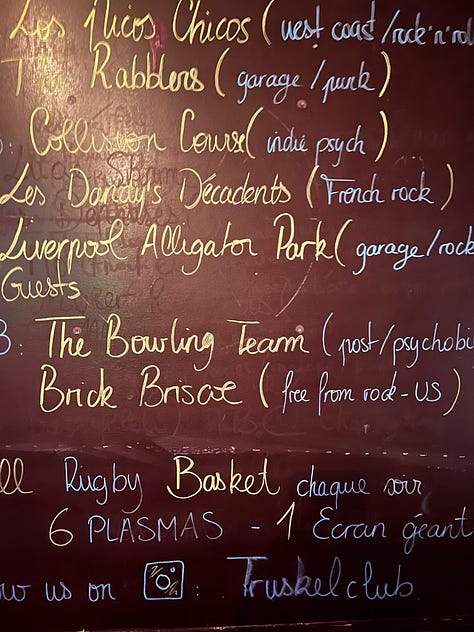 Los Nicos Chicos (west coast/rock'n'rol
The Rabblers (garage/punk)
: Collision Course (indie psych)
Les Dandy's Décadents (French rock)
Liverpool Alligator Park (garage/rock
Guests
3: The Bowling Team (post/psychobi
Brick Briscoe (free from rock-US)
ll Rugby Basket chaque soir
6 PLASMAS - 1 Ecran géant
ow us on : Truskelclub